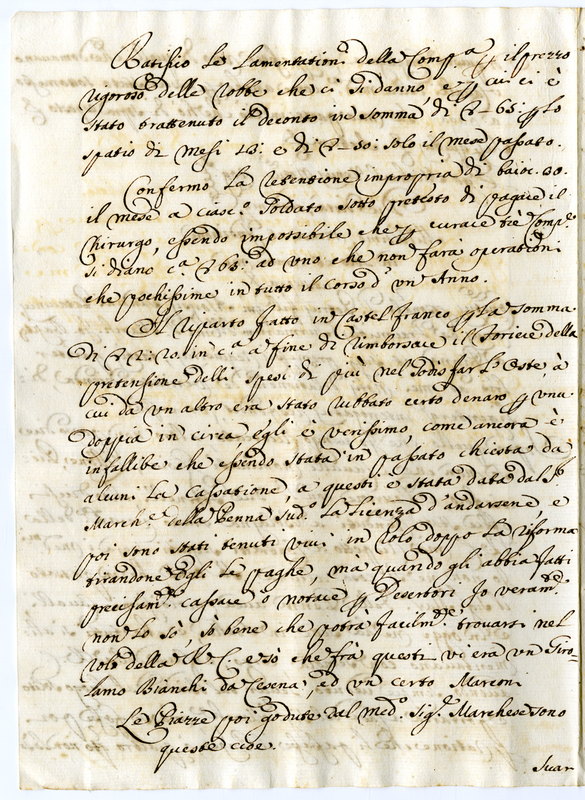 Ratifico le lamentationi della Comp.a p il prezzo
rigoroso delle robbe che ci si danno, e p cui ci è
stato trattenuto il deconto in somma di 65: p lo
spatio di mesi 13: e di 50: solo il mese passato.
Confermo la retentione impropria di baioc. 20.
il mese a ciasc.o soldato sotto pretesto di pagare il
Chirurgo, essendo impossibile che p curare trè Comp.e
si diano c.a 65: ad uno che non farà operationi
che pochissime in tutto il corso d'un Anno.
Il riparto fatto in Castel franco p la somma
di 22: 20. in c.a a fine di rimborsare il foriere della
pretensione delli spesi di più nel sodisfar l'Oste, à
cui da un altro era stato rubbato certo denaro p una
doppia in circa egli è verissimo, come ancora è
infallibe che essendo stata in passato chiesta da
alcuni la cassatione, a questi è stata data dal S.r
March.e della Penna sud.o la licenza d'andarsene, e
poi sono stati tenuti vivi in rolo doppo la riforma
tirandone egli le paghe, mà quando gli abbia fatti
precisam.te cassare ò notare p Desertori Io veram.te
non lo sò, sò bene che potrà facilm.te trovarsi nel
rolo della R. C. e sò che frà questi vi era un Giro-
lamo Bianchi da Cesena, ed un certo Marconi
Le Piazze poi godute dal med.o Sig.r Marchese sono
queste cioe.